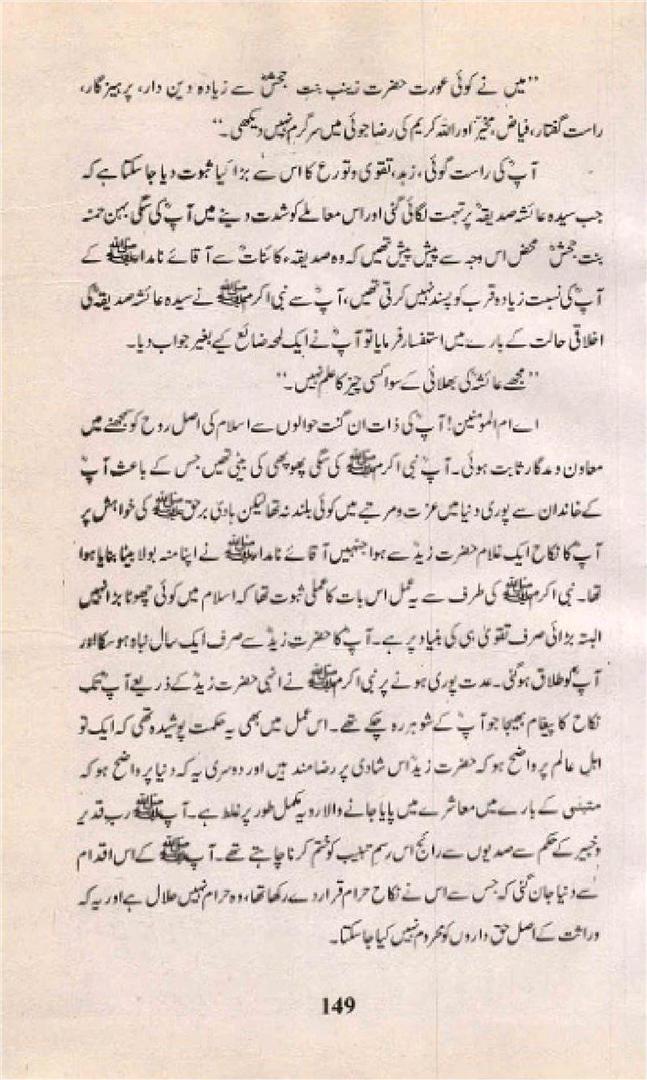 ”میں نے کوئی عورت حضرت زینب بنتِ جحشؓ سے زیادہ دین دار، پرہیزگار،
راست گفتار، فیاض، مخیر اور اللہ کریم کی رضا جوئی میں سرگرم نہیں دیکھی۔“
آپؓ کی راست گوئی، زہد، تقویٰ و تورع کا اس سے بڑا کیا ثبوت دیا جا سکتا ہے کہ
جب سیدہ عائشہ صدیقہؓ پر تہمت لگائی گئی اور اس معاملے کو شدت دینے میں آپؓ کی سگی بہن حمنہ
بنت جحشؓ محض اس وجہ سے پیش پیش تھیں کہ وہ صدیقہء کائناتؓ سے آقائے نامدارﷺ کے
آپؓ کی نسبت زیادہ قرب کو پسند نہیں کرتی تھیں، آپؓ سے نبی اکرمﷺ نے سیدہ عائشہ صدیقہؓ کی
اخلاقی حالت کے بارے میں استفسار فرمایا تو آپؓ نے ایک لمحہ ضائع کیے بغیر جواب دیا۔
”مجھے عائشہؓ کی بھلائی کے سوا کسی چیز کا علم نہیں۔“
اے ام المومنین! آپؓ کی ذات ان گنت حوالوں سے اسلام کی اصل روح کو سمجھنے میں
معاون و مددگار ثابت ہوئی۔ آپؓ نبی اکرمﷺ کی سگی پھوپھی کی بیٹی تھیں جس کے باعث آپؓ
کے خاندان سے پوری دنیا میں عزت و مرتبے میں کوئی بلند نہ تھا لیکن ہادی برحقﷺ کی خواہش پر
آپؓ کا نکاح ایک غلام حضرت زیدؓ سے ہوا جنہیں آقائے نامدارﷺ نے اپنا منہ بولا بیٹا بنایا ہوا
تھا۔ نبی اکرمﷺ کی طرف سے یہ عمل اس بات کا عملی ثبوت تھا کہ اسلام میں کوئی چھوٹا بڑا نہیں
البتہ بڑائی صرف تقویٰ ہی کی بنیاد پر ہے۔ آپؓ کا حضرت زیدؓ سے صرف ایک سال نباہ ہو سکا اور
آپؓ کو طلاق ہو گئی۔ عدت پوری ہونے پر نبی اکرمﷺ نے انہی حضرت زیدؓ کے ذریعے آپؓ تک
نکاح کا پیغام بھیجا جو آپؓ کے شوہر رہ چکے تھے۔ اس عمل میں بھی یہ حکمت پوشیدہ تھی کہ ایک تو
اہل عالم پر واضح ہو کہ حضرت زیدؓ اس شادی پر رضا مند ہیں اور دوسری یہ کہ دنیا پر واضح ہو کہ
متبنیٰ کے بارے میں معاشرے میں پایا جانے والا رویہ مکمل طور پر غلط ہے۔ آپﷺ رب قدیر
و خبیر کے حکم سے صدیوں سے رائج اس رسمِ تبنیت کو ختم کرنا چاہتے تھے۔ آپﷺ کے اس اقدام
سے دنیا جان گئی کہ جس سے اس نے نکاح حرام قرار دے رکھا تھا، وہ حرام نہیں حلال ہے اور یہ کہ
وراثت کے اصل حق داروں کو محروم نہیں کیا جا سکتا۔
149